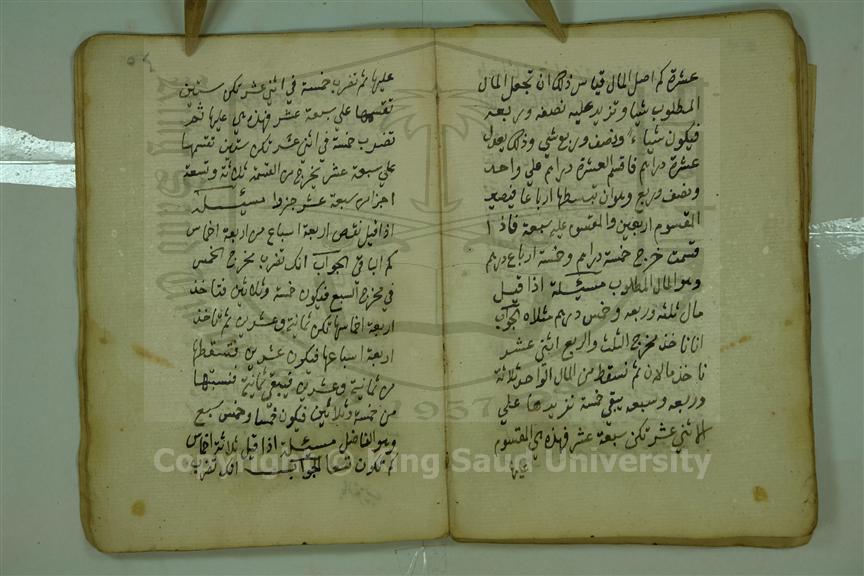 عشرة كم اصل المال قياس ذلك ان تجعل المال
المطلوب شيا وتزيد عليه نصفه وربعه
فيكون شياء ونصف وربع شي وذلك يعدل
عشرة دراهم فاقسم العشرة دراهم علي واحد
ونصف وربع وهو ان تبسطها ارباعا فيصير
المقسوم اربعين والمقسوم عليه سبعة فاذا
قسمت خرج خمسة دراهم وخمسة ارباع درهم
وهو المال المطلوب مسيئلة اذا قيل
مال ثلثه وربعه وخمس درهم مثلاه الجواب
انا ناخذ مخرج الثلث والربع اثني عشر
ناخذ مالان ثم نسقط من المال الواحد ثلاثة
وربعه وسبعه يبقي خمسة نزيدها علي
الاثني عشر تكن سبعة عشر فهذه هي المقسوم
عليها
عليها ثم تضرب خمسة في اثني عشر تكن ستين
تقسمها علي سبعة عشر فهذه هي عليها ثم
تضرب خمسة في اثني عشر تكن ستين تقسمها
علي سبعة عشر يخرج من القسمة ثلاثة وتسعة
اجزا من سبعة عشر جزوا مسيئلة
اذا قيل نقص اربعة اسباع من اربعة اخماس
كم الباقي الجواب انك تضرب مخرج الخمس
في مخرج السبع فيكون خمسة وثلاثين فتاخذ
اربعة اخماسها تكن ثمانية وعشرين ثم تاخذ
اربعة اسباعها فيكون عشرين فتسقطها
من ثمانية وعشرين فيبقي ثمانية فتنسبها
من خمسة وثلاثين فيكون خمسا وخمس سبع
وهو الفاضل مسيئلة اذا قيل ثلاثة اخماس
كم تكون تسعا الجواب انك تضرب
1957
Copyright © King Saud University